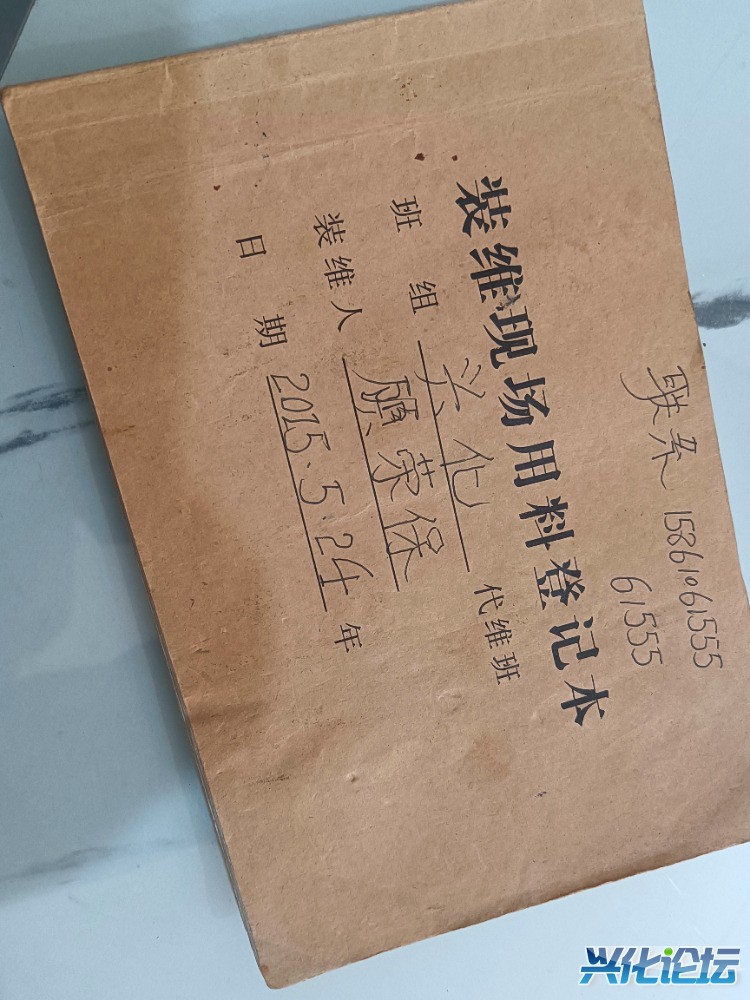 联系 15861061555
61555
装维现场用料登记本
班 组 兴化 代维班
装维人 顾荣保
日 期 2015.5.24 年
兴化论坛